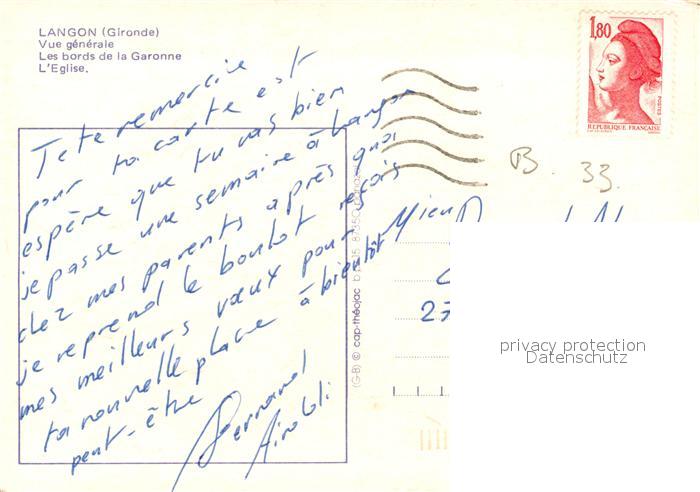 LANGON (Gironde)
Vue générale
Les bords de la Garonne
L'Eglise.
1,80
POSTES
REPUBLIQUE FRANÇAISE
B. 33.
Je te remercie
pour ta carte et
espère que tu vas bien
je passe une semaine à Langon
chez mes parents après quoi
je reprend le boulot reçois
mes meilleurs vœux pour
ta nouvelle place à bientôt
peut-être
Bernard
(G-B) © cap-théojac
27
privacy protection
Datenschutz